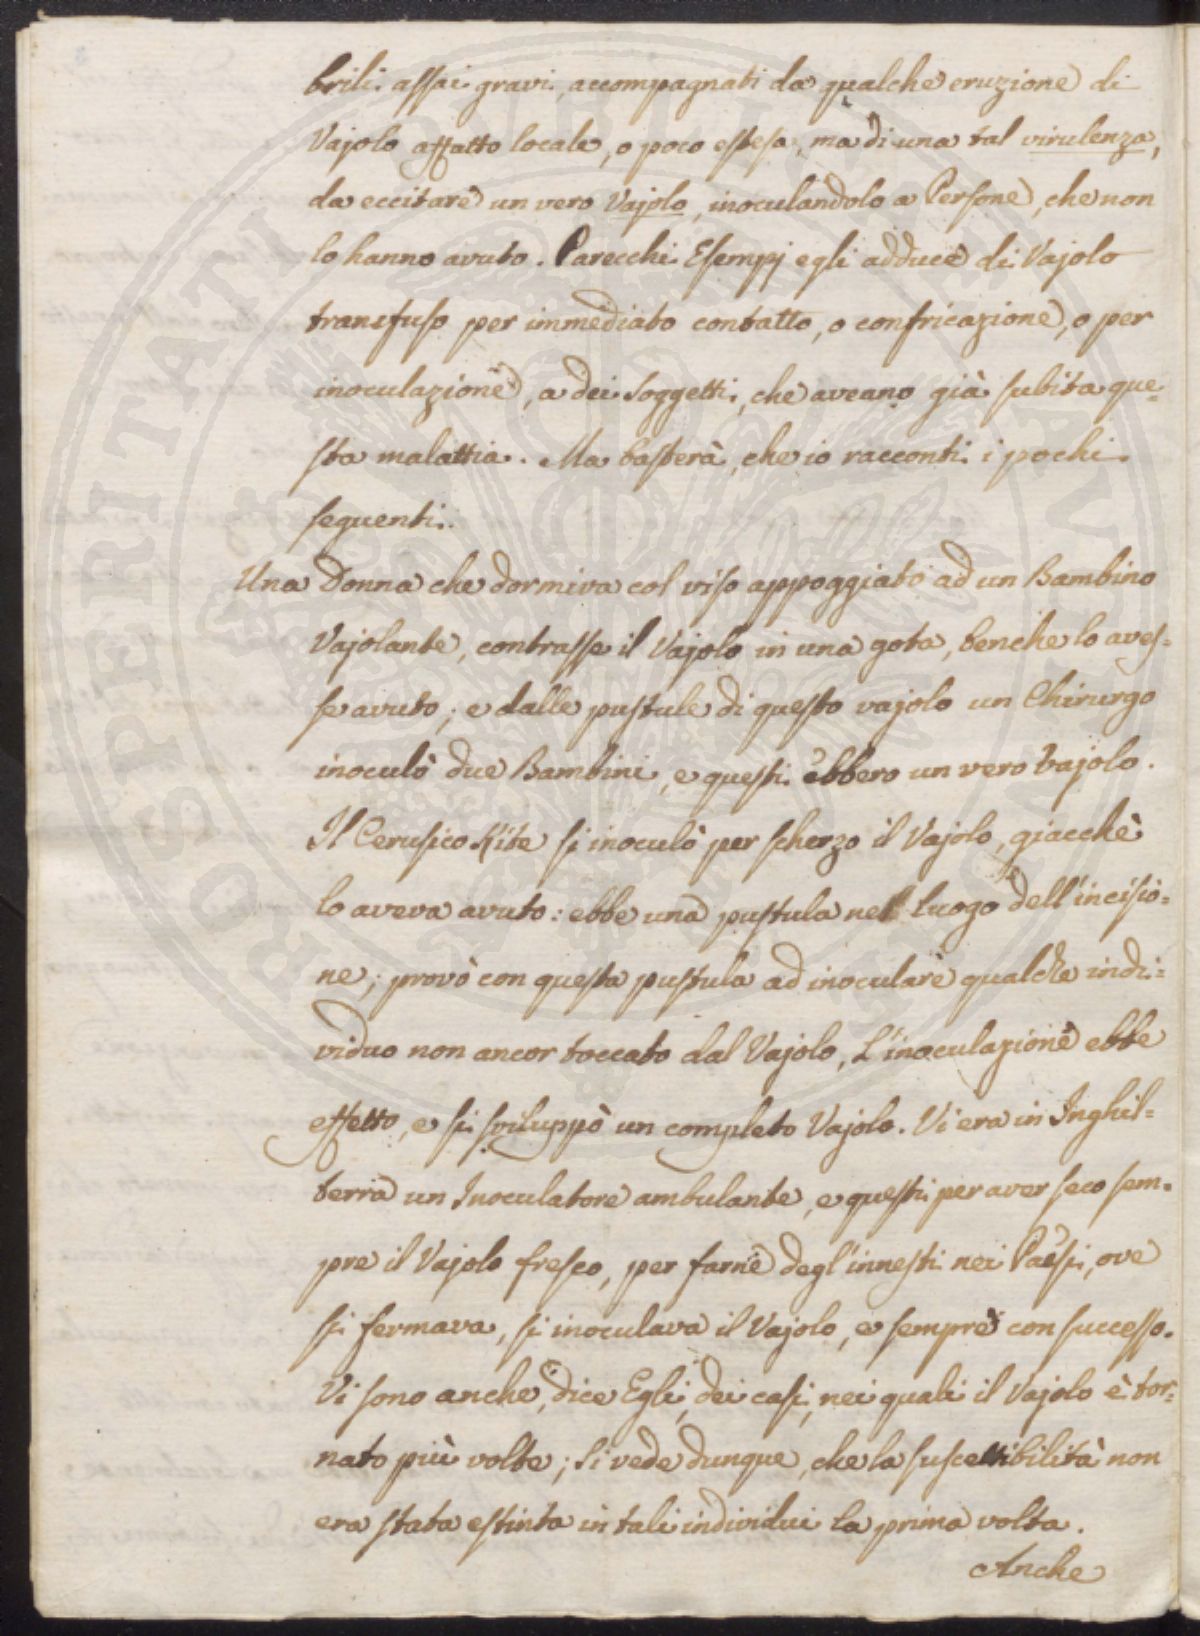 brili assai gravi, accompagnati da qualche eruzione di
Vajolo affatto locale, o poco estesa, ma di una tal virulenza,
da eccitare un vero Vajolo, inoculandolo a Persone, che non
lo hanno avuto. Parecchi Esempj egli adduce di Vajolo
transfuso per immediato contatto, o confricazione, o per
inoculazione, a dei Soggetti, che aveano già subita que=
sta malattia. Ma basterà, che io racconti i pochi
seguenti.
Una Donna che dormiva col viso appoggiato ad un Bambino
Vajolante, contrasse il Vajolo in una gota, benche lo aves=
se avuto; e dalle pustule di questo vajolo un Chirurgo
inoculò due Bambini, e questi ebbero un vero Vajolo.
Il Cerusico Kite si inoculò per scherzo il Vajolo, giacchè
lo aveva avuto: ebbe una pustula nel luogo dell'incisio=
ne; provò con questa pustula ad inoculare qualche indi=
viduo non ancor toccato dal Vajolo, L'inoculazione ebbe
effetto, e si sviluppò un completo Vajolo. Vi era in Inghil=
terra un Inoculatore ambulante, e questi per aver seco sem=
pre il Vajolo fresco, per farne degl'innesti nei Paesi, ove
si fermava, si inoculava il Vajolo, e sempre con successo.
Vi sono anche, dice Egli, dei casi, nei quali il Vajolo è tor=
nato più volte; Si vede dunque, che la suscettibilità non
era stata estinta in tali individui la prima volta.
Anche
PROSPERITATI PUBLICAE AUGENDAE